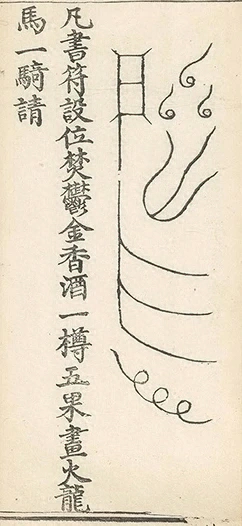 凡書符設位焚鬱金香酒一樽五果畫火龍
馬一騎請